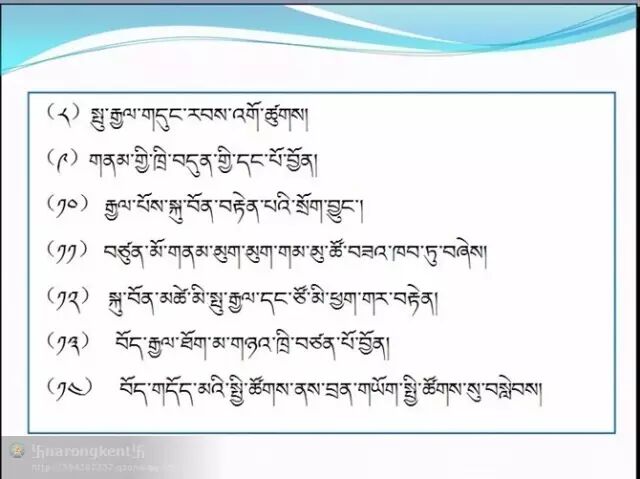 (༨) སྤུ་རྒྱལ་གདུང་རབས་འགོ་ཚུགས།
(༩) གནམ་གྱི་ཁྲི་བདུན་གྱི་དང་པོ་བྱོན།
(༡༠) རྒྱལ་པོས་སྐུ་བོན་བརྟེན་པའི་སྲོག་བྱུང་།
(༡༡) བཙུན་མོ་གནམ་མུག་མུག་གམ་མུ་ཚོ་བཟའ་ཁབ་ཏུ་བཞེས།
(༡༢) སྐུ་བོན་མཚེ་མི་སྤུ་རྒྱལ་དང་ཙོ་མི་ཕྱག་གར་བརྟེན།
(༡༣) བོད་རྒྱལ་ཐོག་མ་གཉའ་ཁྲི་བཙན་པོ་བྱོན།
(༡༤) བོད་གདོད་མའི་སྤྱི་ཚོགས་ནས་བྲན་གཡོག་སྤྱི་ཚོགས་སུ་བསླེབས།
卐narongkent卐